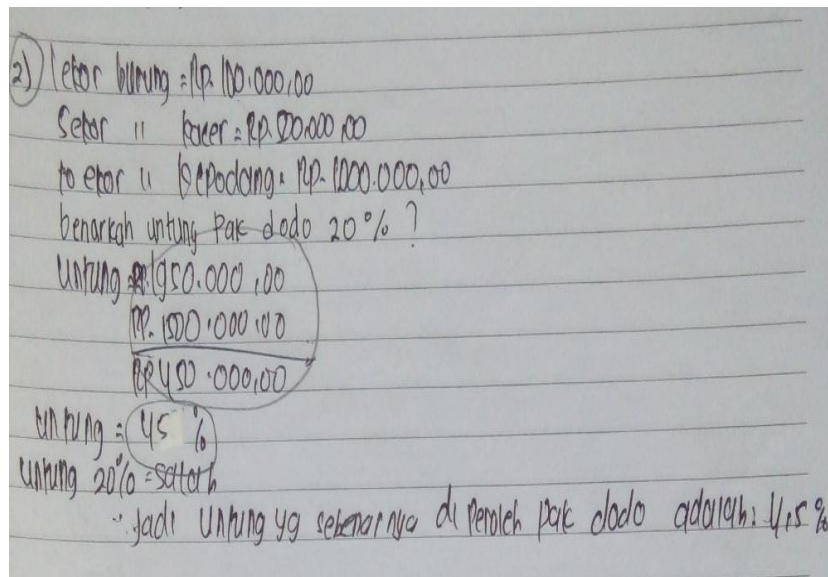 2) 1 ekor burung = Rp. 100.000,00
5 ekor " kacer = Rp. 500.000,00
10 ekor " kepodang = Rp. 1000.000,00
benarkah untung Pak dodo 20% ?
Untung = 1950.000,00
Rp. 1500.000,00
Rp 450.000,00
untung = 45 %
Untung 20% = salah
∴ Jadi Untung yg sebenarnya di peroleh pak dodo adalah: 4,5 %